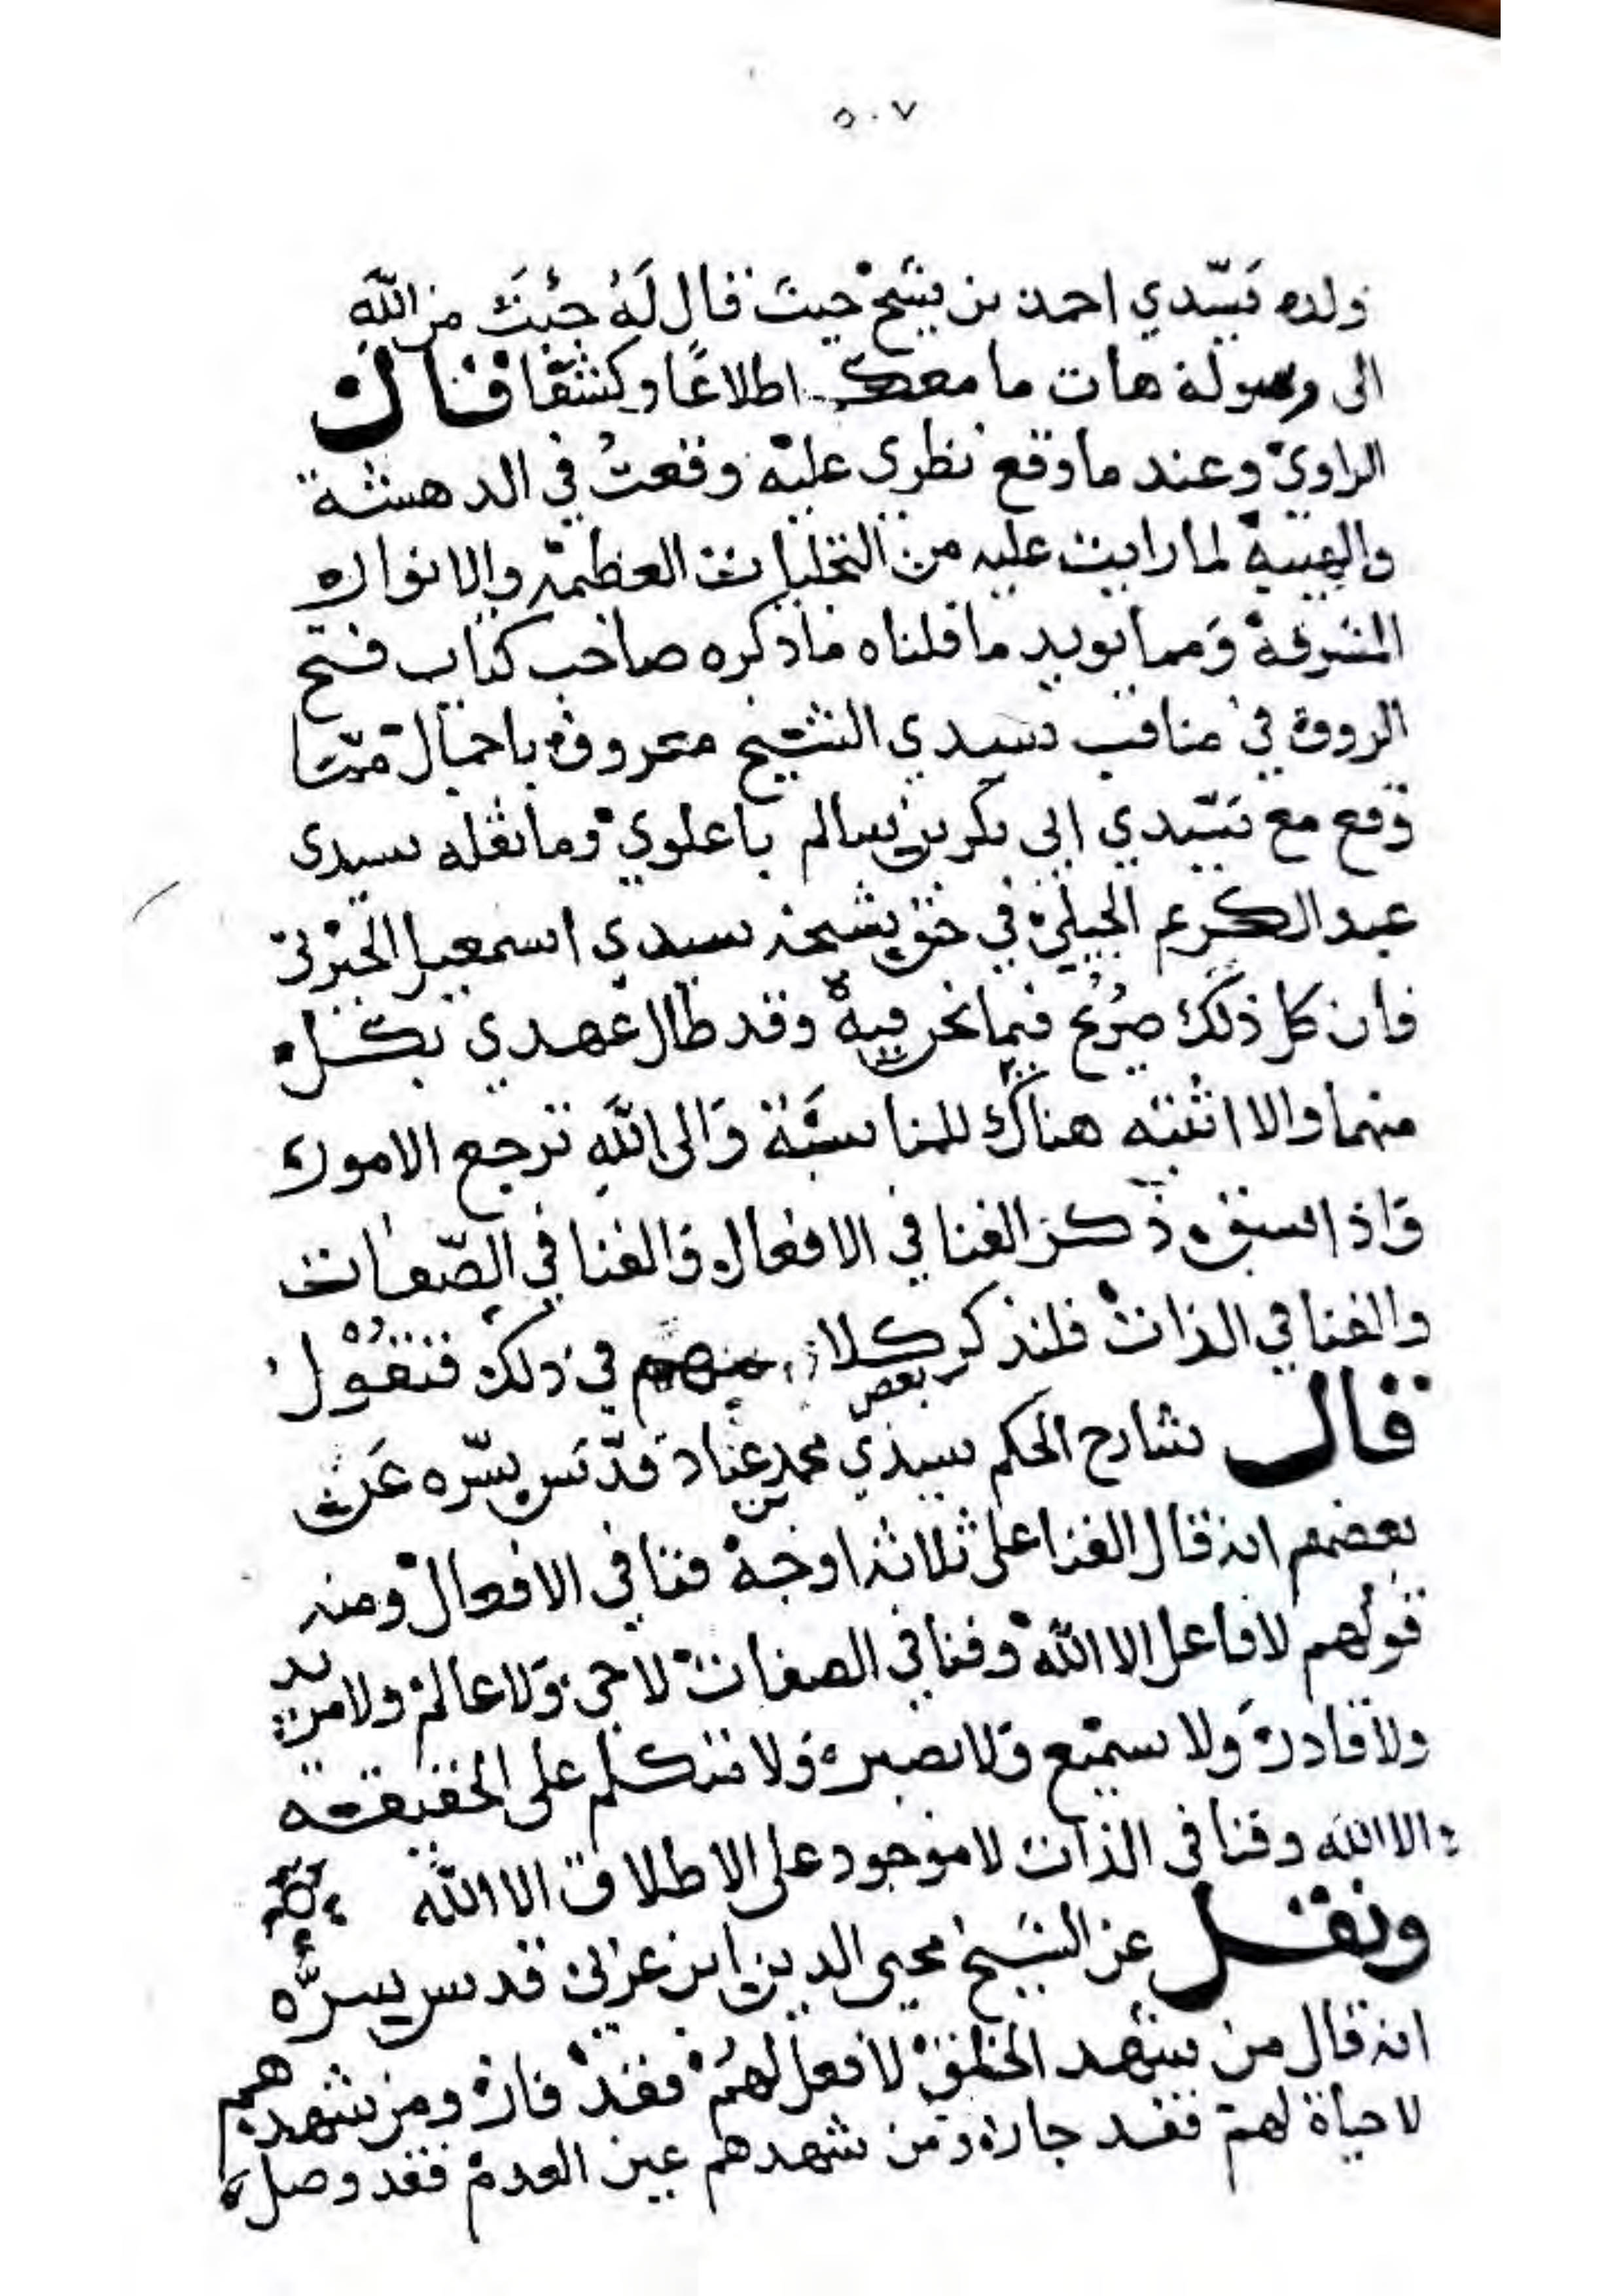 ٥٠٧
ولده سيّدي احمد بن شيخ حيث قال لَهُ جئتَ من اللهِ
الى رسوله هات ما معك اطلاعًا وكشفا قال
الراوي وعند ما وقع نظري عليه وقعتُ في الدهشة
والهيبة لما رايت عليه من التجليات العظيمة والانوار
المشرقة ومما يويد ما قلناه ما ذكره صاحب كتاب فتح
الروف في مناقب سيدي الشيخ معروف باجمال ممّا
وقع مع سيّدي ابي بكر بن سالم باعلوي وما نقله سيدي
عبد الكريم الجيلي في حق شيخه سيدي اسمعيل الجبرتي
فان كل ذلك صريح فيما نحن فيه وقد طال عهدي بكل
منهما والا اثبته هناك للمناسبة وَالى اللهِ ترجع الامور
واذا سبق ذكر الفنا في الافعال والفنا في الصّفات
والفنا في الذات فلنذكر كلام بعض في ذلك فنقول
قال شارح الحكم سيدي محمد بن عباد قدّس سرّه عن
بعضهم انه قال الفنا على ثلاثه اوجه فنا في الافعال ومنه
قولهم لا فاعل الا الله وفنا في الصفات لا حي ولا عالم ولا مريد
ولا قادر ولا سميع ولا بصير ولا متكلم على الحقيقه
الا الله وفنا في الذات لا موجود على الاطلاق الا الله
ونقل عن الشيخ محيي الدين ابن عربي قدس سرُّه
انه قال من شهد الخلق لا فعل لهُم فقد فاز ومن شهدهم
لا حياة لهم فقد جاز ومن شهدهم عين العدم فقد وصل